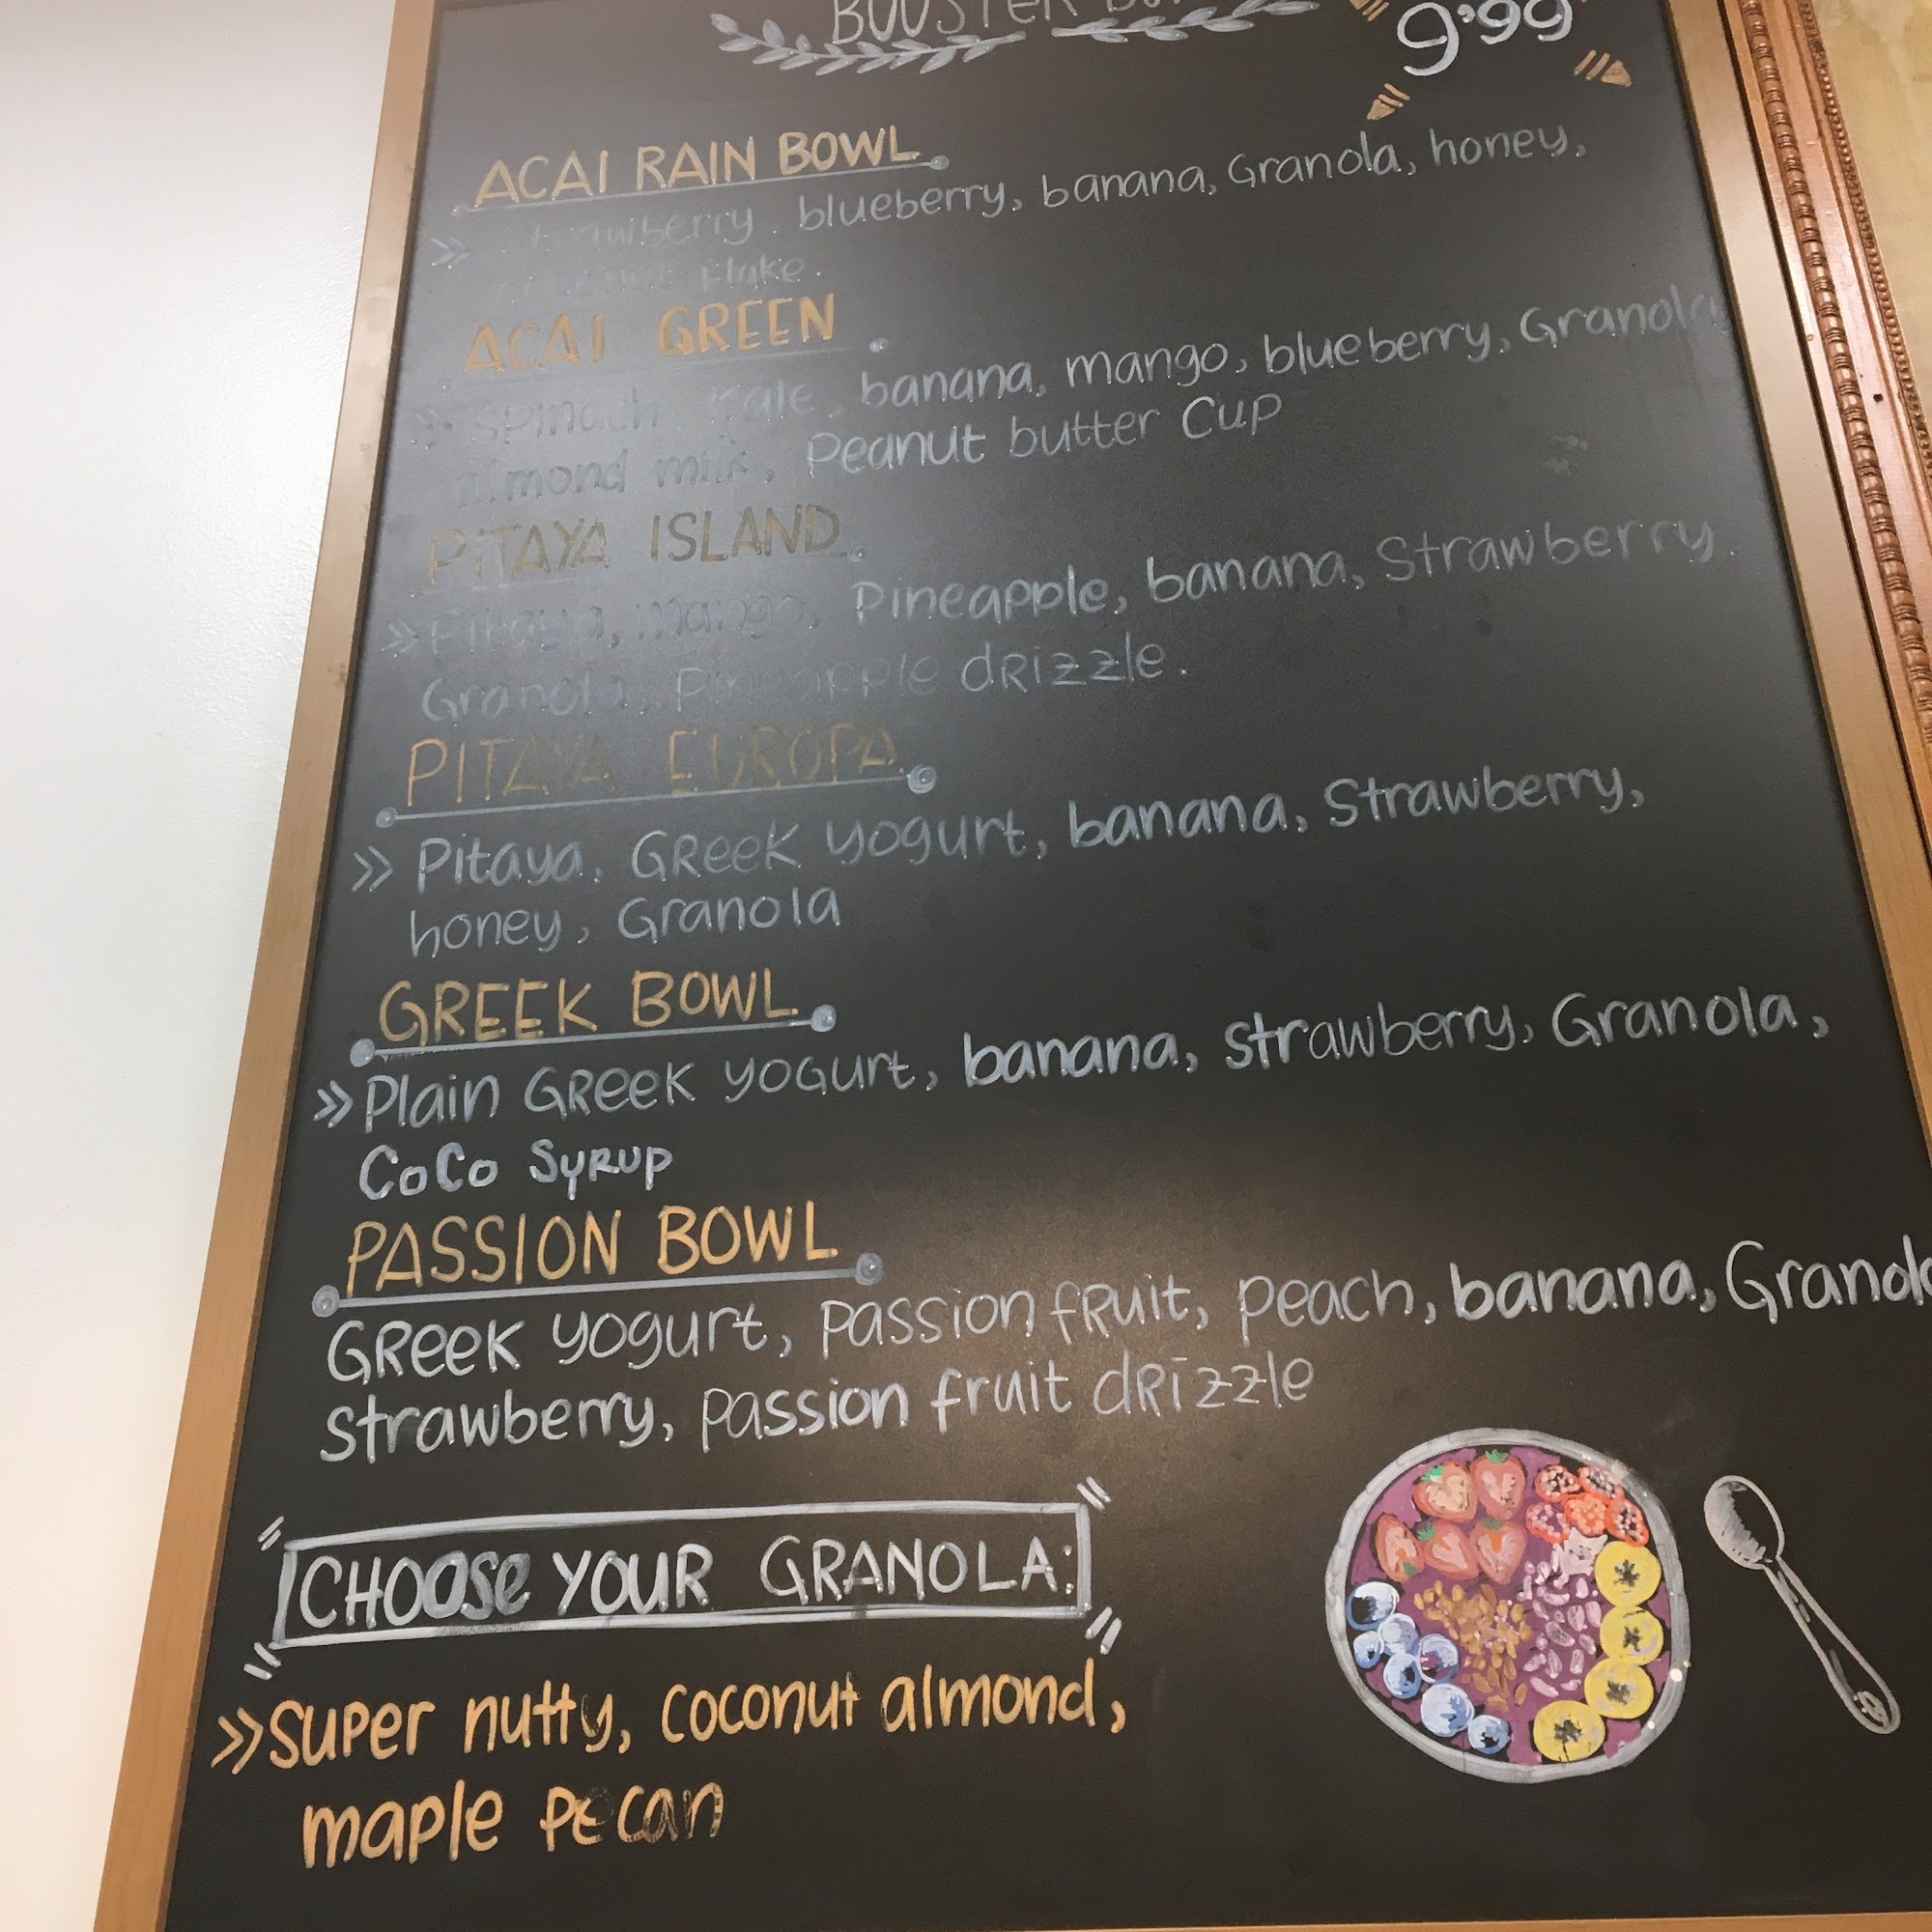 BOOSTER
9.99
ACAI RAIN BOWL
» Strawberry, blueberry, banana, Granola, honey,
coconut flake.
ACAI GREEN
» Spinach, Kale, banana, mango, blueberry, Granola,
almond milk, Peanut butter Cup
PITAYA ISLAND
» Pitaya, mango, Pineapple, banana, Strawberry.
Granola, Pineapple dRizzle.
PITAYA EUROPA
» Pitaya, GReek yogurt, banana, Strawberry,
honey, Granola
GREEK BOWL
» Plain GReek yogurt, banana, strawberry, Granola,
CoCo SyRUP
PASSION BOWL
GReek yogurt, passion fRuit, peach, banana, Granola
strawberry, passion fruit dRizzle
CHOOSe YOUR GRANOLA:
» Super nutty, coconut almond,
maple Pecan